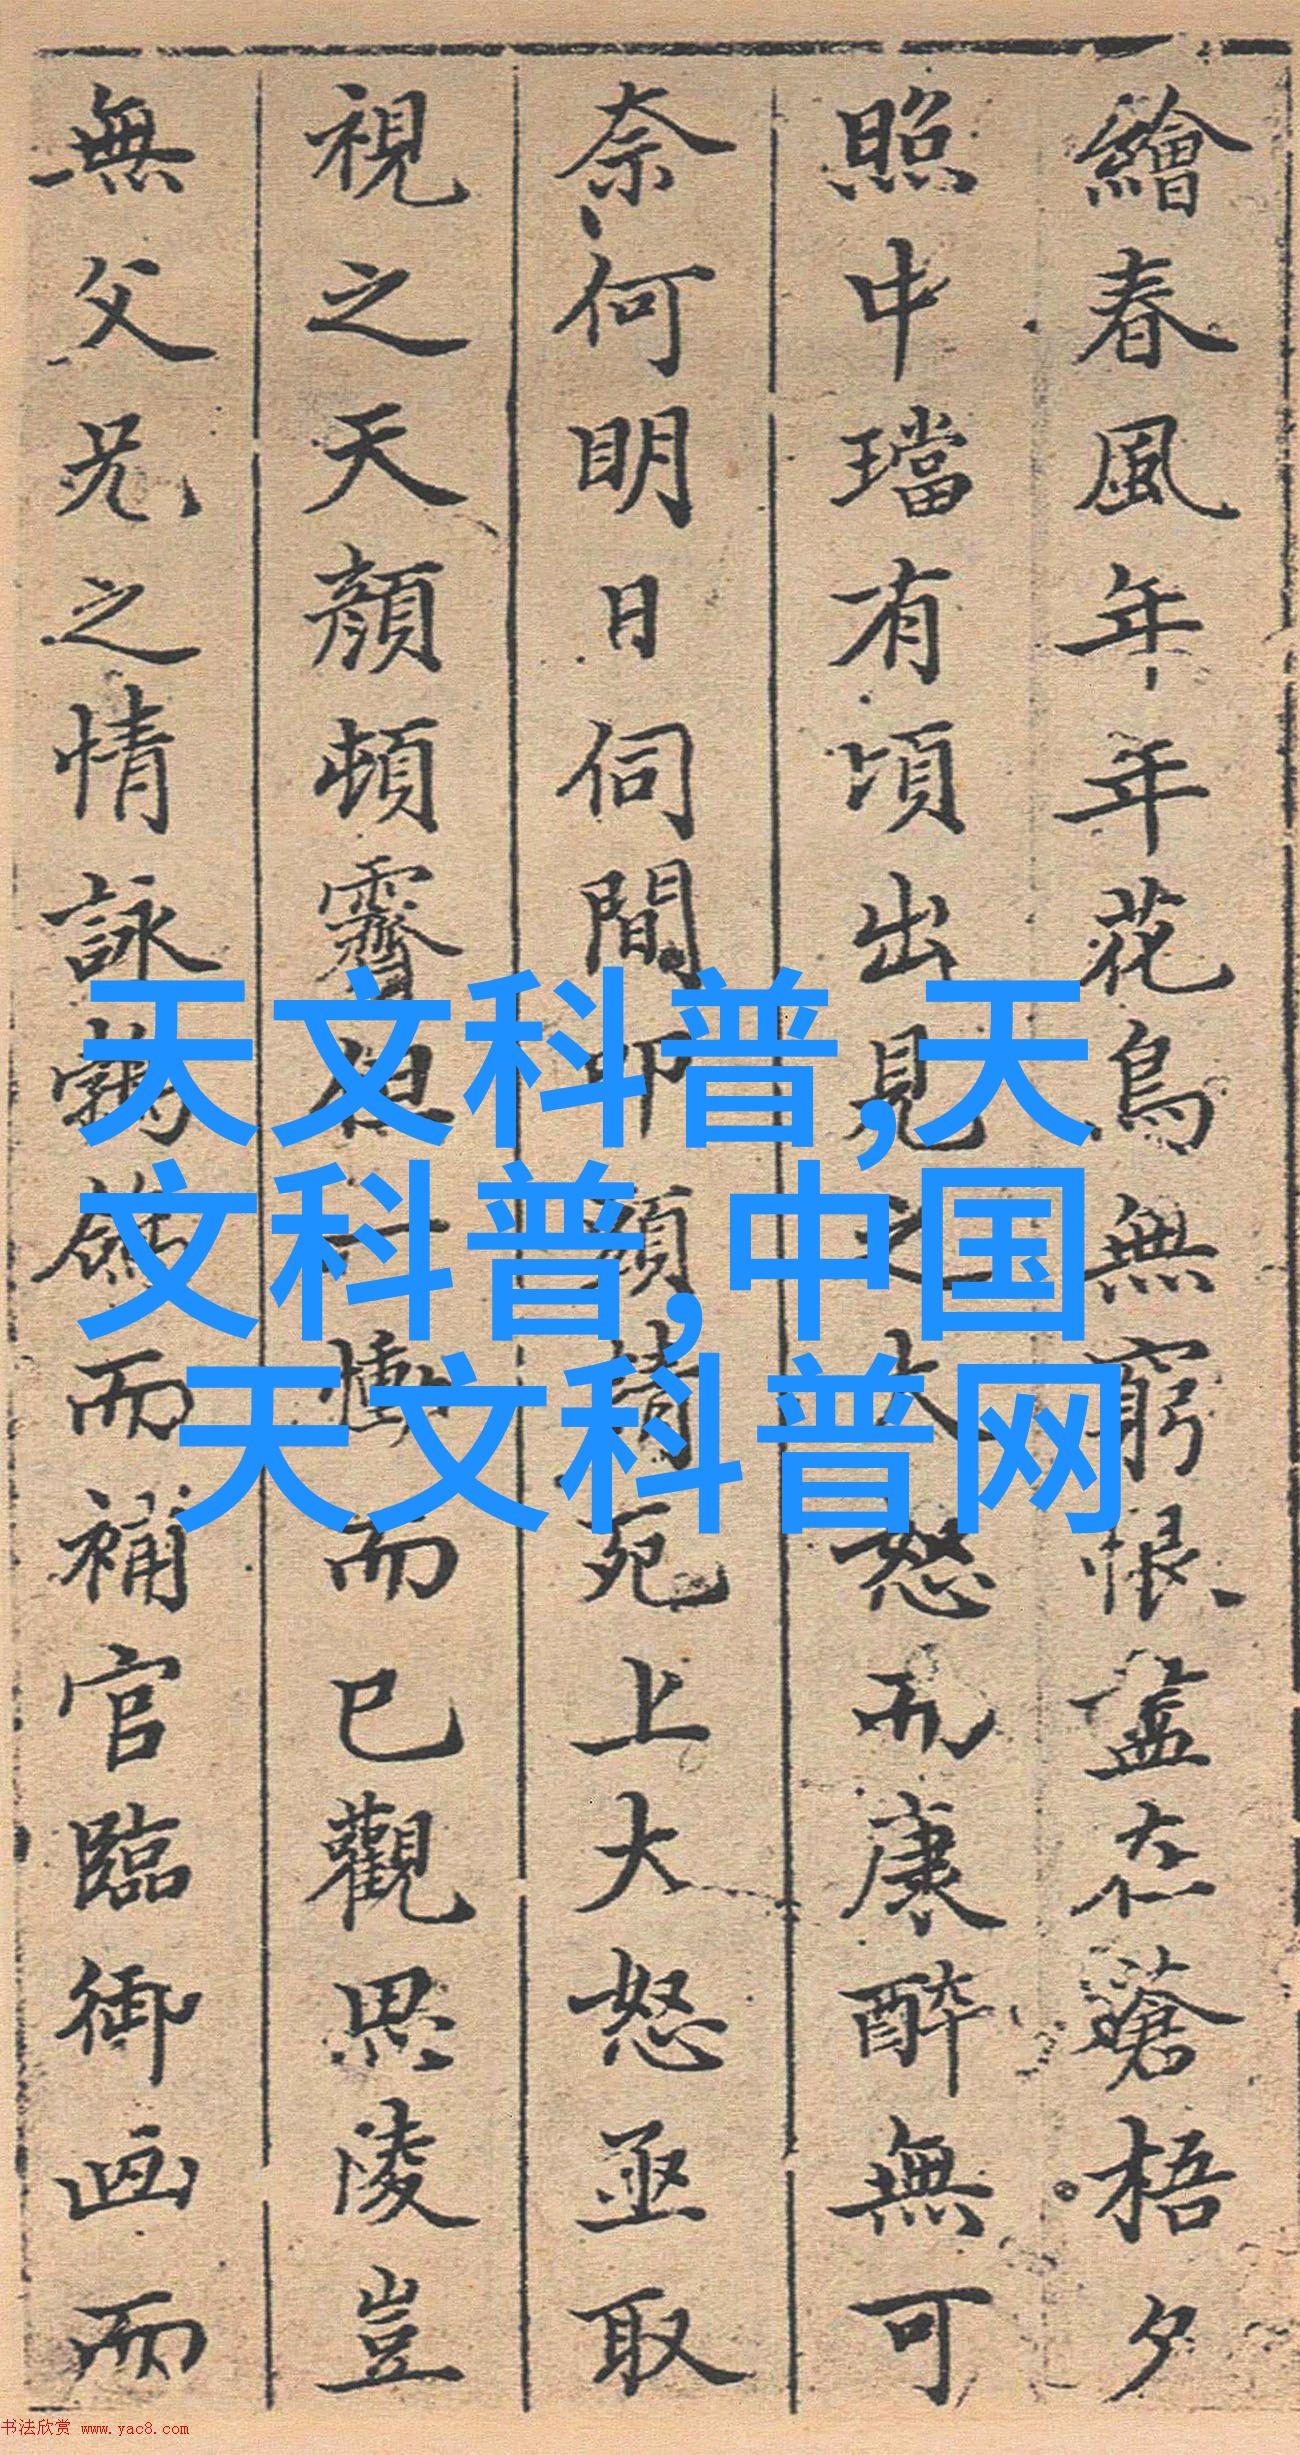 繪春風年年花鳥無窮恨盡在蒼梧夕
照中璫有頃出見之大怒而康醉無可
奈何明日伺間叩頭請死上大怒亟取
視之天顏頓霽但一慟而已觀思陵豈
無父兄之情詠鶺鴒而補官臨御画而
天文科普,天
文科普,中国
天文科普网
书法欣赏 www.yac8.com